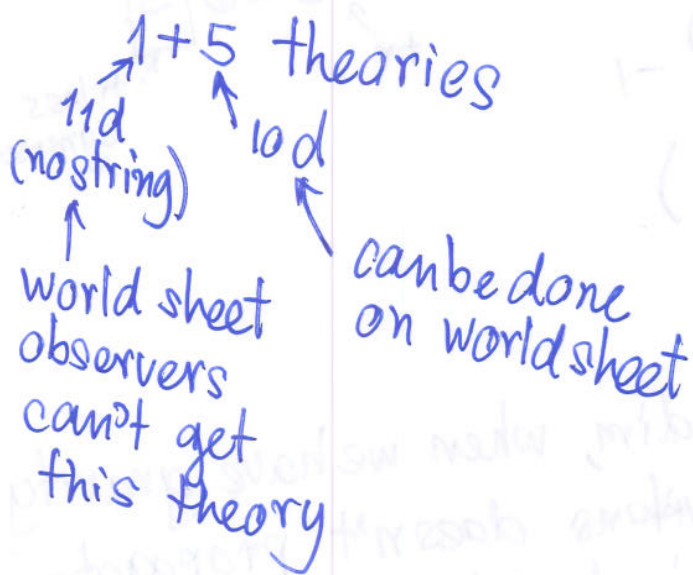 1+5 thearies
11d
(no string)
10d
world sheet
observers
can't get
this theory
can be done
on worldsheet